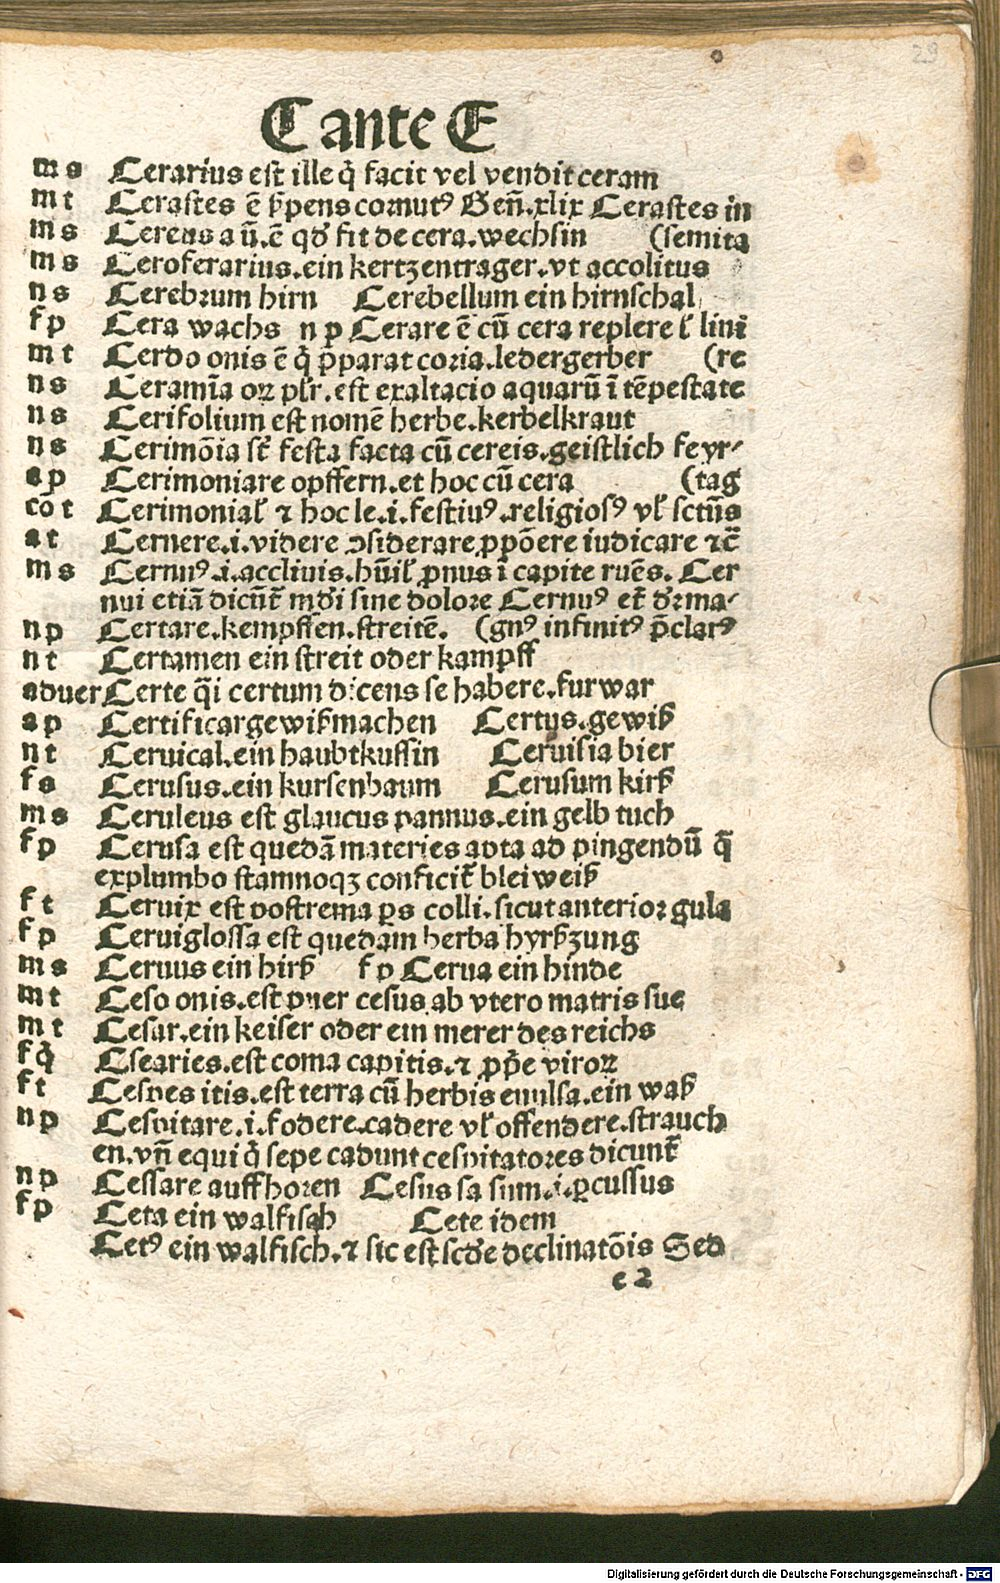 29
C ante E
m s Cerarius est ille q̄ facit vel vendit ceram
m t Cerastes ē ẜpens cornutꝰ Geñ.xlix Cerastes in
m s Cereus a ū.ē qđ fit de cera.wechsin (semita
m s Ceroferarius.ein kertzentrager.vt accolitus
n s Cerebrum hirn Cerebellum ein hirnschal
f p Cera wachs n p Cerare ē cū cera replere ł lini
m t Cerdo onis ē q̄ p̄parat coria.ledergerber (re
n s Ceramīa oꝝ plr̄.est exaltacio aquarū ī tēpestate
n s Cerifolium est nomē herbe.kerbelkraut
n s Cerimōia st̄ festa facta cū cereis.geistlich feyr⸗
a p Cerimoniare opffern.et hoc cū cera (tag
cō t Cerimoniał ⁊ hoc le.i.festiuꝰ.religiosꝰ vł sctūs
a t Cernere.i.videre ↄsiderare ꝓpōere iudicare ⁊c̄
m s Cernuꝰ.i.acclinis.hūił ꝓnus ī capite ruēs. Cer
nui etiā dicūt̄ mōi sine dolore Cernuꝰ et̄ đrma⸗
n p Certare.kempffen.streitē. (gnꝰ infinitꝰ p̄clarꝰ
n t Certamen ein streit oder kampff
aduer Certe q̄i certum dicens se habere.furwar
a p Certificar gewißmachen Certus.gewiß
n t Ceruical.ein haubtkussin Ceruisia bier
f s Cerusus.ein kursenbaum Cerusum kirß
m s Ceruleus est glaucus pannus.ein gelb tuch
f p Cerusa est quedā materies apta ad pingendū q̄
explumbo stamnoqꝫ conficit̄ bleiweiß
f t Ceruix est postrema ꝑs colli.sicut anterior gula
f p Ceruiglossa est quedam herba hyrßzung
m s Ceruus ein hirß f p Cerua ein hinde
m t Ceso onis.est puer cesus ab vtero matris sue
m t Cesar.ein keiser oder ein merer des reichs
f q̄ Csearies.est coma capitis.⁊ ꝓp̄e viroꝝ
f t Cespes itis.est terra cū herbis euulsa.ein waß
n p Cespitare.i.fodere.cadere vł offendere.strauch
en.vn̄ equi q̄ sepe cadunt cespitatores dicunt̄
n p Cessare auffhoren Cesus sa sum.i.ꝑcussus
f p Ceta ein walfisch Cete idem
Cetꝰ ein walfisch.⁊ sic est scđe declinatōis Sed
e 2
Digitalisierung gefördert durch die Deutsche Forschungsgemeinschaft - DFG